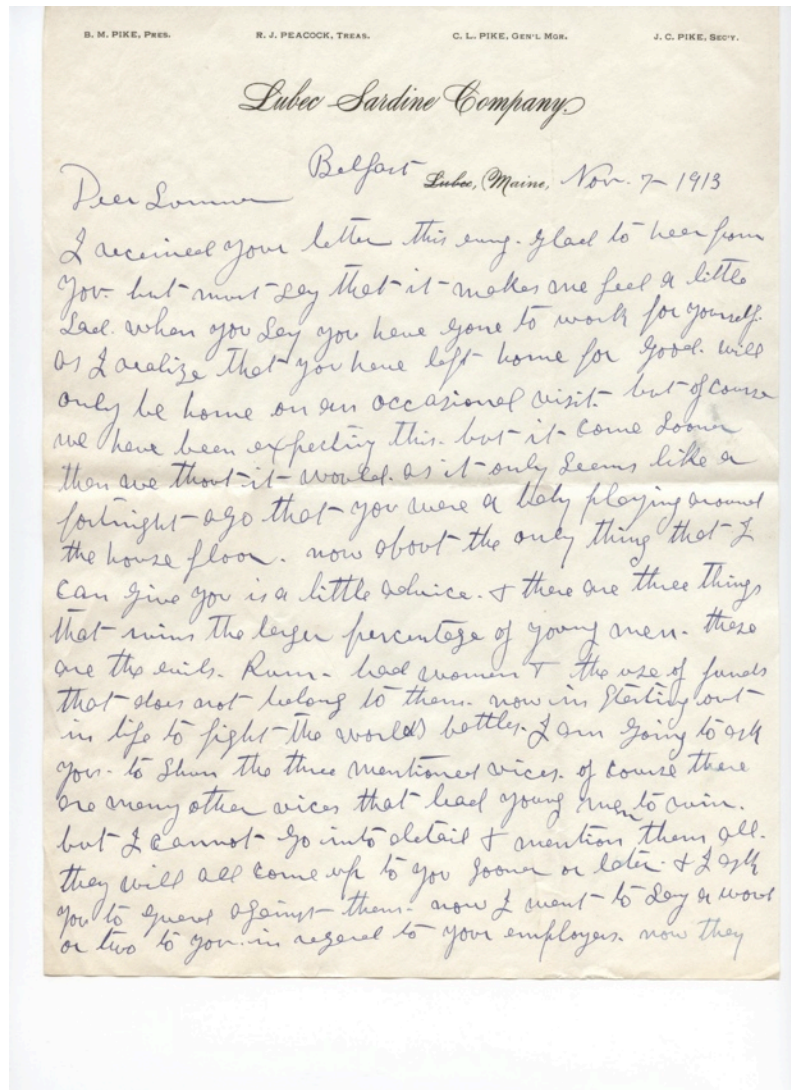 B. M. PIKE, PRES. R. J. PEACOCK, TREAS. C. L. PIKE, GEN'L MGR. J. C. PIKE, SEC'Y.
Lubec Sardine Company
Belfast Lubec, Maine, Nov. 7 - 1913
Dear
I received your letter this evng. glad to hear from
you. but must say that it makes me feel a little
sad. when you say you have gone to work for yourself.
as I realize that you have left home for good. will
only be home on an occasional visit. but of course
we have been expecting this. but it come sooner
then we thout it would. as it only seems like a
fortnight ago that you were a baby playing around
the house floor. now about the only thing that I
can give you is a little advice. & there are three things
that ruins the larger percentage of young men. these
are the evils. Rum - bad women & the use of funds
that does not belong to them. now in starting out
in life to fight the worlds battles. I am going to ask
you. to shun the three mentioned vices. of course there
are many other vices that lead young men to ruin.
but I cannot go into detail & mention them all.
they will all come up to you sooner or later. & I ask
you to guard against them. now I want to say a word
or two to you. in regard to your employers. now they